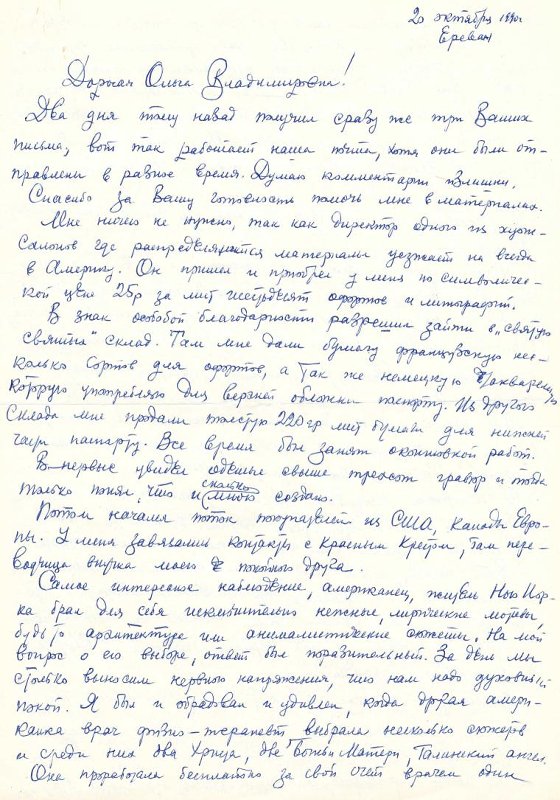 20 октября 1990г
Ереван
Дорогая Ольга Владимировна!
Два дня тому назад получил сразу же три Ваших
письма, вот так работает наша почта, хотя они были от-
правлены в разное время. Думаю комментарии излишни.
Спасибо за Вашу готовность помочь мне в материалах.
Мне ничего не нужно, так как директор одного из худож.
салонов где распределяются материалы уезжает на всегда
в Америку. Он пришел и приобрел у меня по символичес-
кой цене 25р за лист шестьдесят офортов и литографий.
В знак особой благодарности разрешил зайти в „святую
святых" склад. Там мне дали бумагу французскую нес-
колько сортов для офортов, а так же немецкую акварельную
которую употребляю для верхней обложки паспарту. Из другого
склада мне продали толстую 220гр лист бумаги для нижней
части паспарту. Все время был занят окантовкой работ.
В первые увидел одетые свыше трехсот гравюр и тогда
только понял, что и сколько мною создано.
Потом начался поток покупателей из США, Канады Евро-
пы. У меня завязались контакты с Красным Крестом, там пере-
водчица внучка моего покойного друга.
Самое интересное наблюдение, американец, Нью Йор-
ка брал для себя исключительно нежные, лирические мотивы,
будь то архитектура или анималистические сюжеты. На мой
вопрос о его выборе, ответ был поразительный. За день мы
столько выносим нервного напряжения, что нам надо духовный
покой. Я был и обрадован и удивлен, когда другая амери-
канка врач физио-терапевт выбрала несколько сюжетов
и среди них два Христа, две Божьи Матери, Талинский ангел.
Она проработала бесплатно за свой счет врачем один